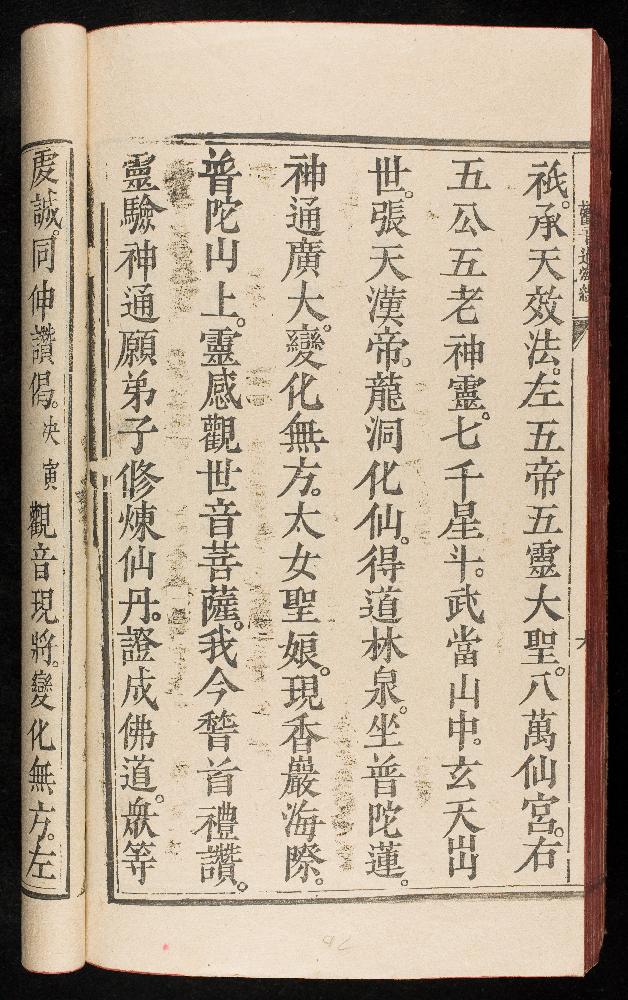 祇。承天效法。左五帝五靈大聖。八萬仙宮。右
五公五老神靈。七千星斗。武當山中。玄天出
世。張天漢帝。龍洞化仙。得道林泉。坐普陀蓮。
神通廣大。變化無方。太女聖娘。現香嚴海際。
普陀山上。靈感觀世音菩薩。我今稽首禮讚。
靈驗神通願弟子修煉仙丹。證成佛道。衆等
虔誠。同伸讚偈。 觀音現將。變化無方。左